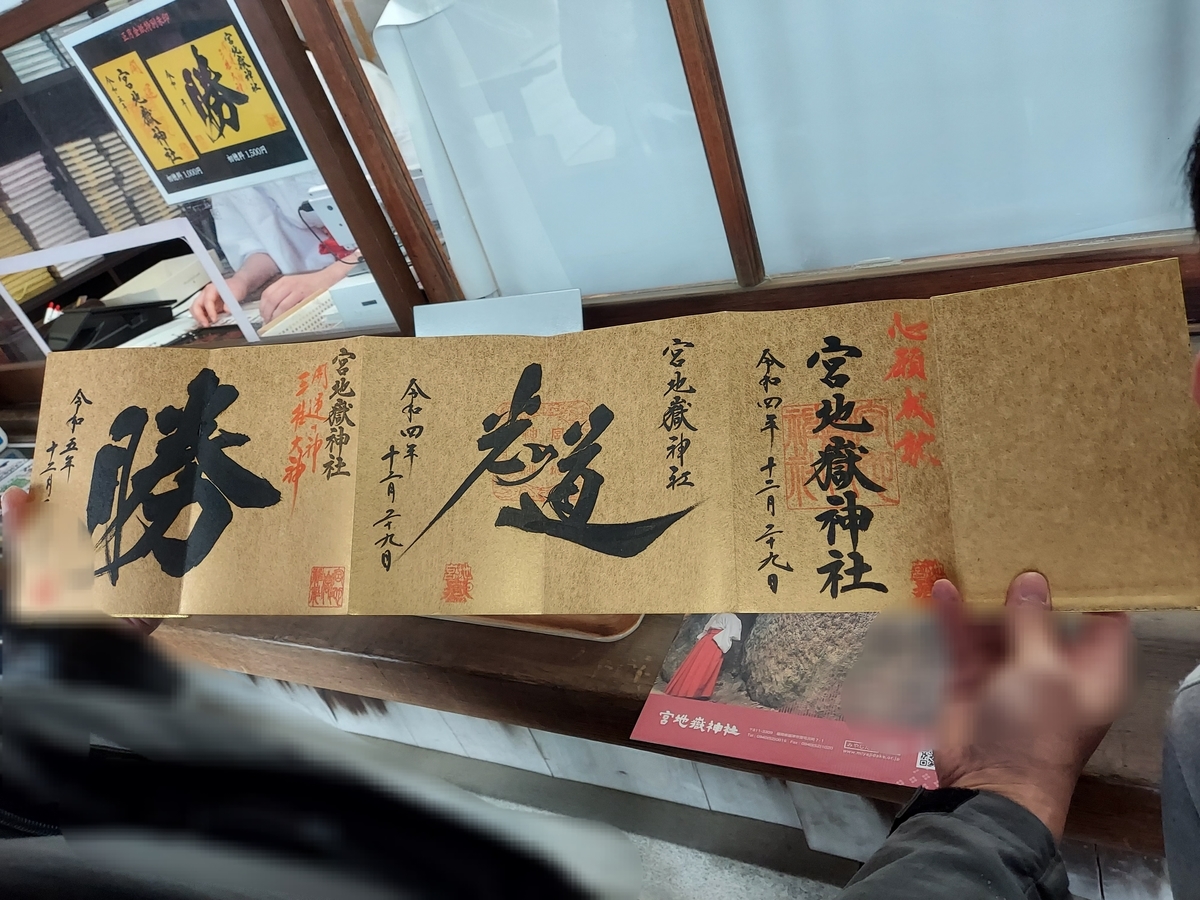 正月金紙特別朱印
宮地嶽神社
勝
宮地嶽神社
初穂料 1,500円
初穂料 1,000円
心願成就
宮地嶽神社
令和四年 十二月 二十九日
宮地嶽神社
光の道
令和四年 十二月 二十九日
宮地嶽神社
開運の神
三柱大神
勝
令和五年
十二月
宮地嶽神社